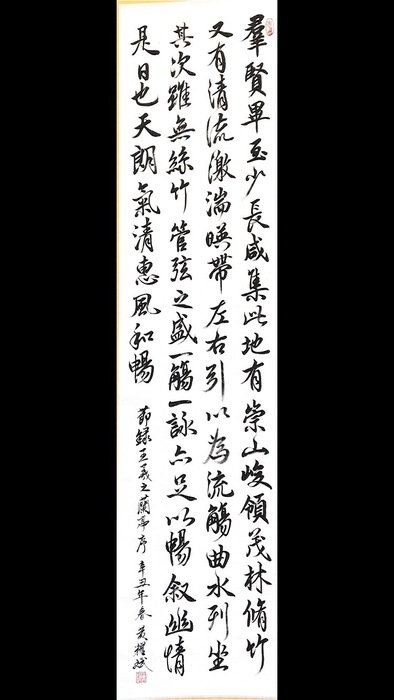 羣賢畢至少長咸集此地有崇山峻領茂林脩竹
又有清流激湍暎帶左右引以為流觴曲水列坐
其次雖無絲竹管弦之盛一觴一詠亦足以暢叙幽情
是日也天朗氣清惠風和暢
節錄王羲之蘭亭序 辛丑年春 黄耀斌